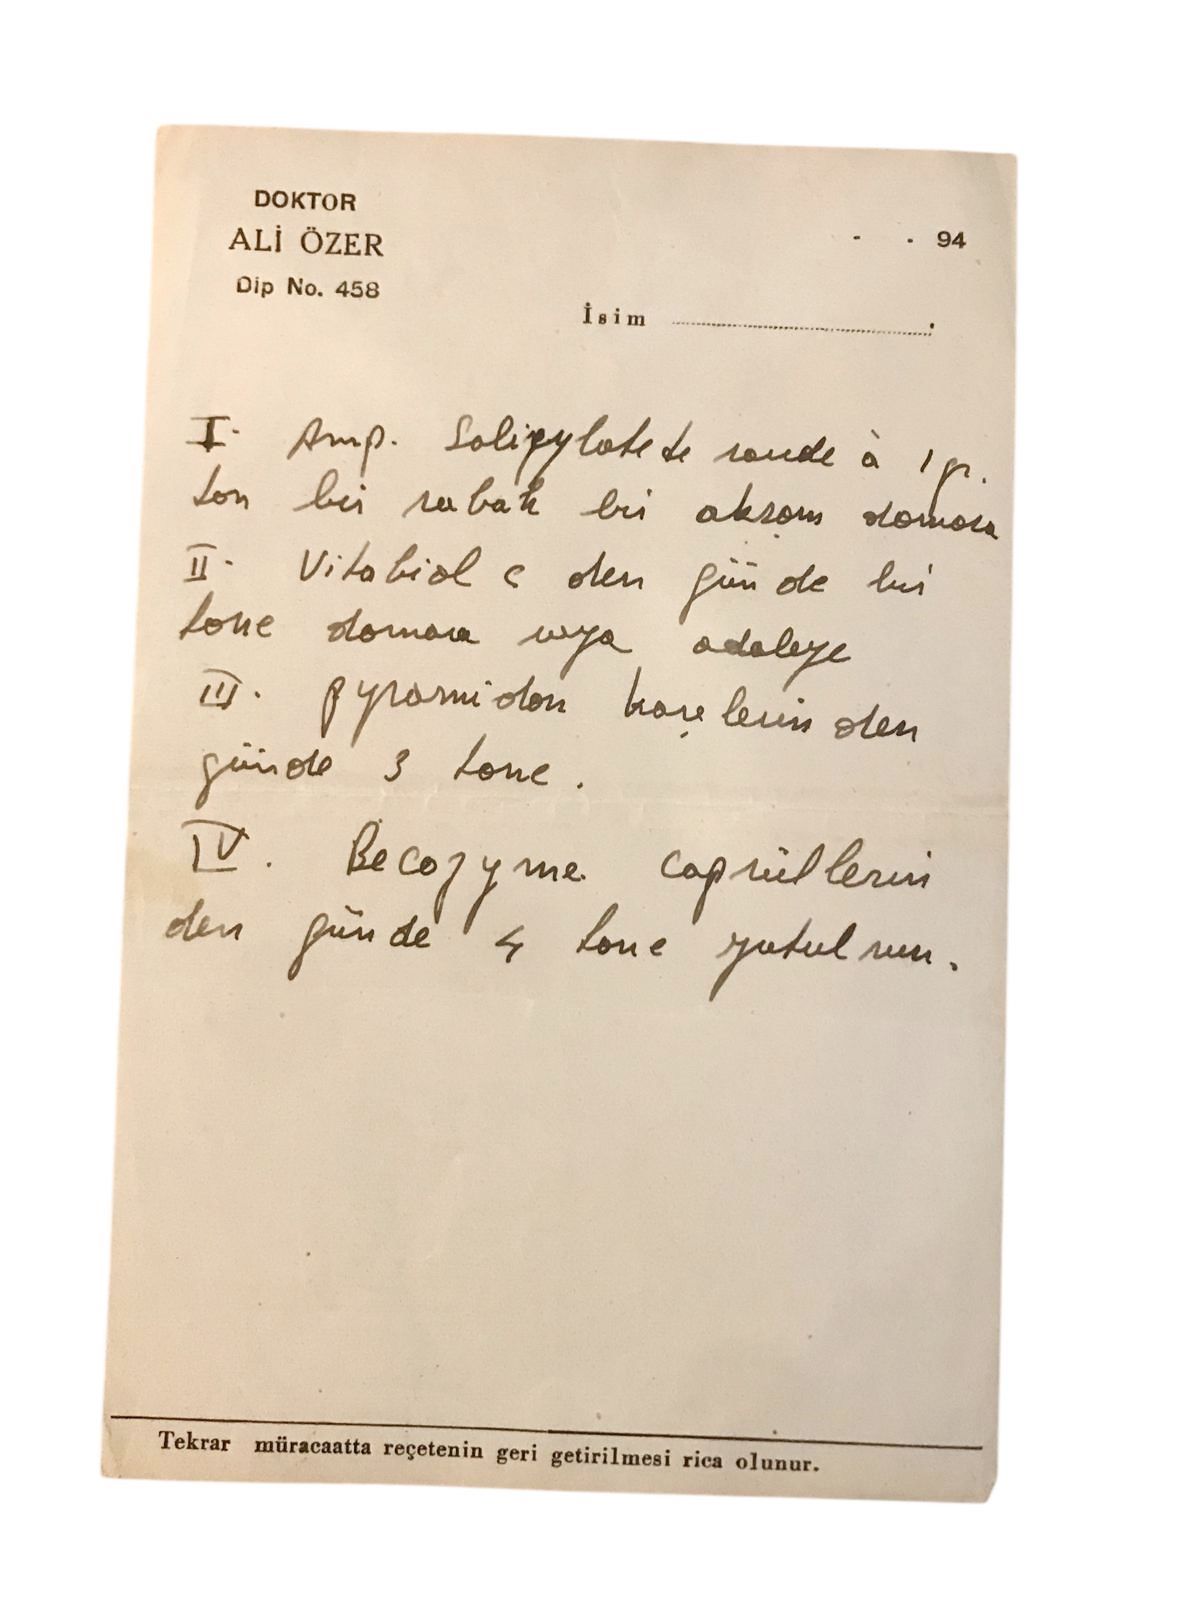 DOKTOR
ALİ ÖZER
Dip No. 458
- - 94
İsim
I. Amp. Salicylate de soude à 1 gr.
tan bir sabah bir akşam damara
II. Vitabiol C den günde bir
tane damara veya adaleye
III. Pyramidon kaşelerinden
günde 3 tane.
IV. Becozyme capsüllerin
den günde 4 tane yutulsun.
Tekrar müracaatta reçetenin geri getirilmesi rica olunur.